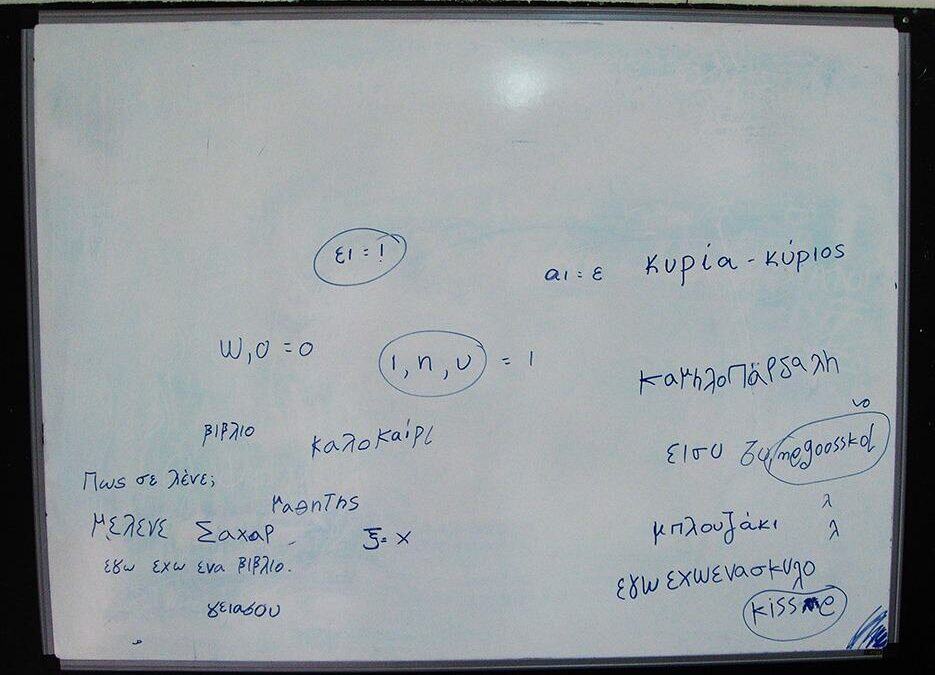 ει = !
αι = ε κυρία - κύριος
ω, ο = ο
ι, η, υ = ι
καμηλοΠάρδαλη
βιβλιο
καλοκαίρι
Πως σε λένε;
μαθητης
με λενε Σαχαρ
ξ = x
μπλουζάκι
λ
λ
εγω εχω ενα βιβλιο.
εγω εχωενασκυλο
γειασου
kiss me